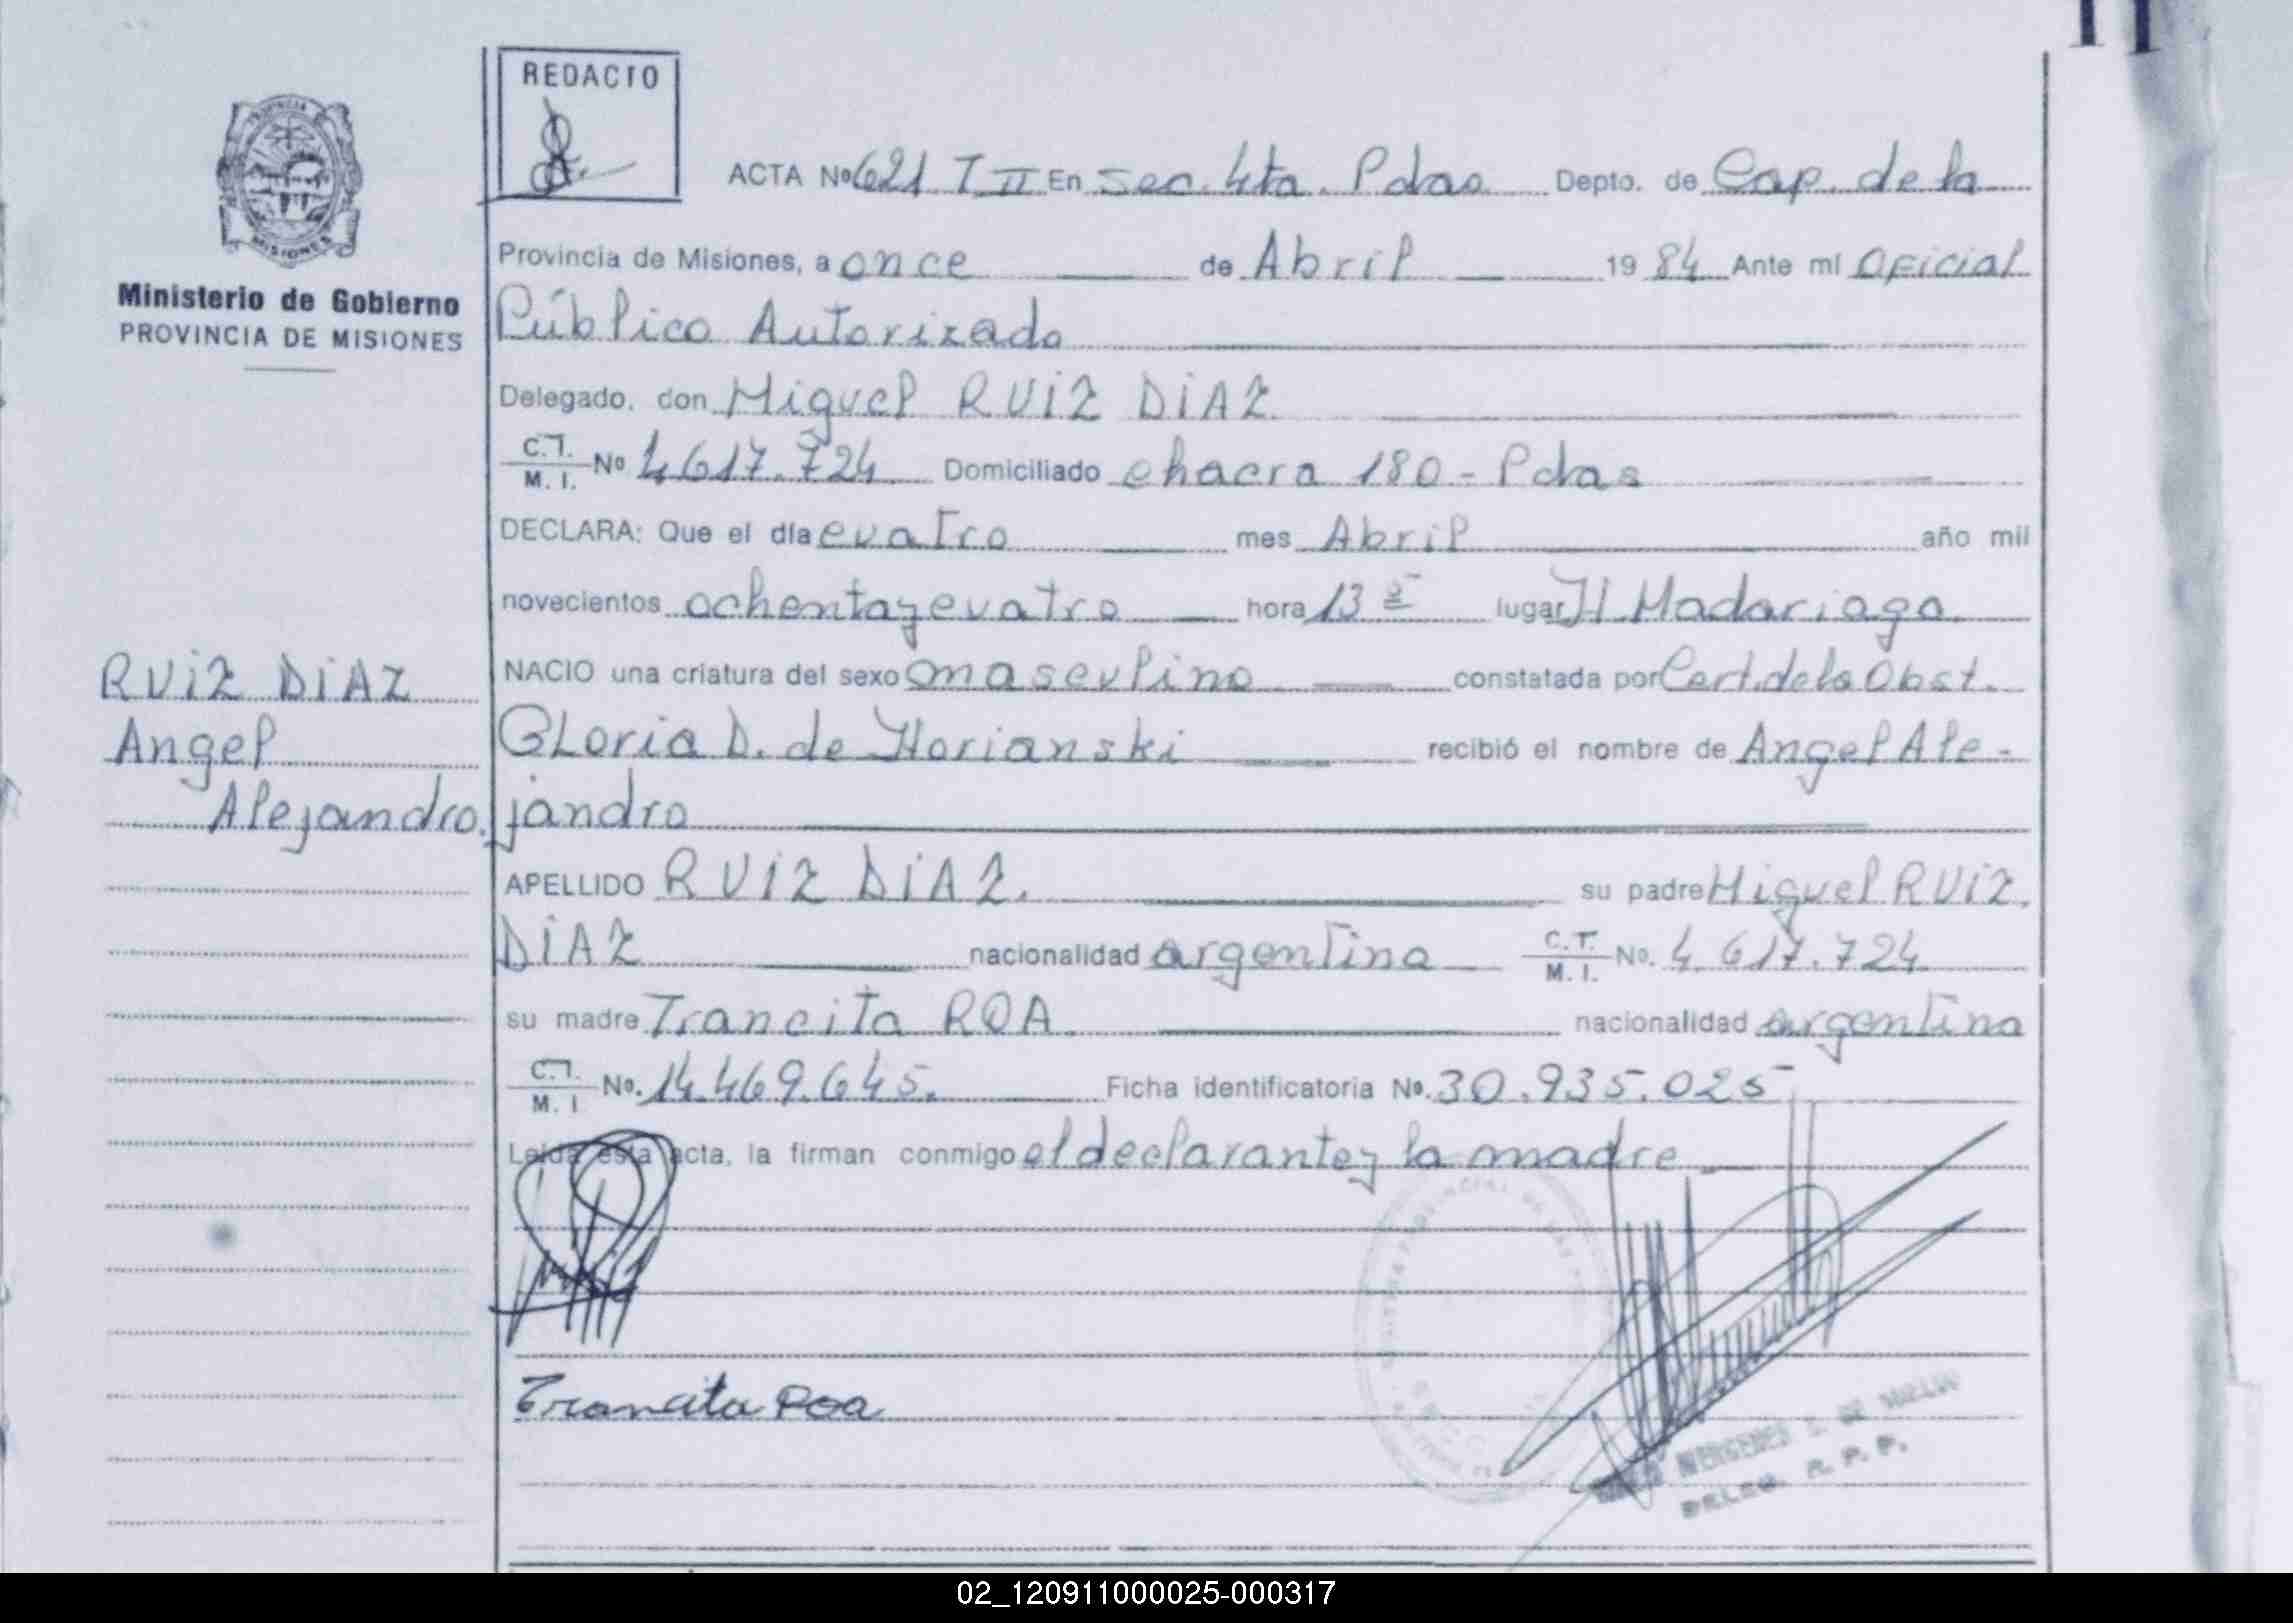 II
REDACTO
PROVINCIA
MISIONES
Ministerio de Gobierno
PROVINCIA DE MISIONES
ACTA Nº 621 T II En Sec. 4ta. Pdas Depto. de Cap. de la
Provincia de Misiones, a once de Abril 19 84 Ante mí Oficial
Público Autorizado
Delegado, don Miguel RUiZ DiAZ
C.I. M. I. Nº 4.617.724 Domiciliado chacra 180 - Pdas
DECLARA: Que el día cuatro mes Abril año mil
novecientos ochentaycuatro hora 13 lugar H. Madariaga
NACIO una criatura del sexo masculino constatada por Cert. de la Obst.
GLoria D. de Horianski recibió el nombre de Angel Ale-
jandro
RUiZ DiAZ
Angel
Alejandro.
APELLIDO RUiZ DiAZ. su padre Miguel RUiZ
DiAZ nacionalidad argentina C.I. M. I. No. 4.617.724
su madre Trancita ROA. nacionalidad argentina
C.I. M. I No. 14.469.645. Ficha identificatoria Nº. 30.935.025
Leída esta acta, la firman conmigo el declarante y la madre
Trancita Roa
DELEG. R. P. P.
02_120911000025-000317